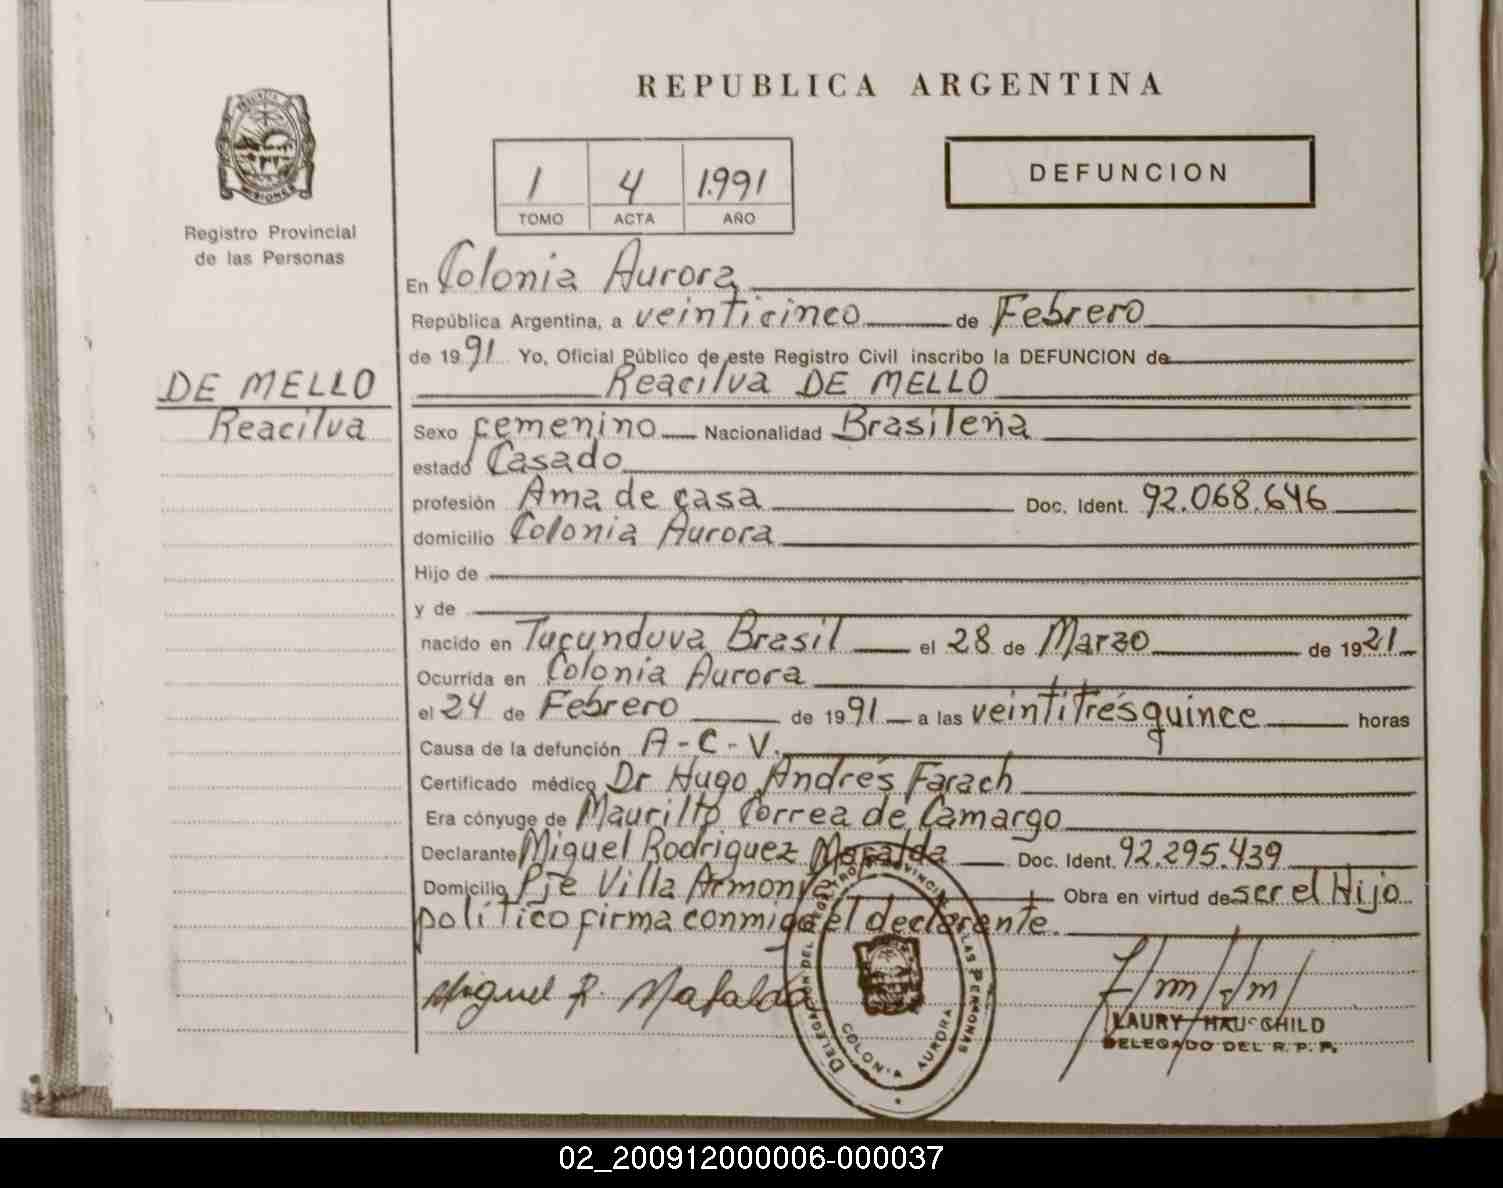 REPUBLICA ARGENTINA
1 4 1.991
TOMO ACTA AÑO
DEFUNCION
PROVINCIA DE MISIONES
Registro Provincial
de las Personas
DE MELLO
Reacilva
En Colonia Aurora
República Argentina, a veinticinco de Febrero
de 1991 Yo, Oficial Público de este Registro Civil inscribo la DEFUNCION de
Reacilva DE MELLO
Sexo femenino Nacionalidad Brasileña
estado Casado
profesión Ama de casa Doc. Ident. 92.068.646
domicilio Colonia Aurora
Hijo de
y de
nacido en Tucunduva Brasil el 28 de Marzo de 1921
Ocurrida en Colonia Aurora
el 24 de Febrero de 1991 a las veintitrés quince horas
Causa de la defunción A-C-V.
Certificado médico Dr Hugo Andrés Farach
Era cónyuge de Maurilio Correa de Camargo
Declarante Miguel Rodriguez Mafalda Doc. Ident. 92.295.439
Domicilio Pje Villa Armonia Obra en virtud de ser el Hijo
político firma conmigo el declarante.
Miguel R. Mafalda
DELEGACION DEL REGISTRO PROVINCIAL DE LAS PERSONAS
COLONIA AURORA
LAURY HAUSCHILD
DELEGADO DEL R. P. P.
02_200912000006-000037